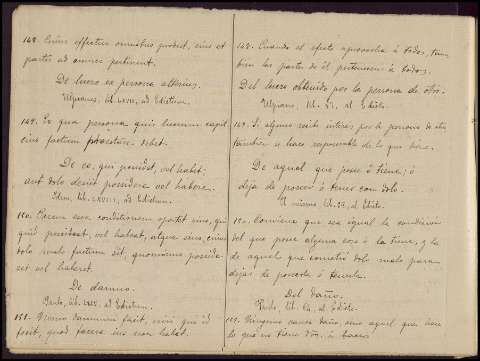 148. Cuius effectus omnibus prodest, eius et
partes ad omnes pertinent.
De lucro ex persona alterius.
Ulpianus, lib. LXVII, ad Edictum.
149. Ex qua persona quis lucrum capit
eius factum præstare debet.
De eo, qui possidet, vel habet;
aut dolo desiit possidere vel habere.
Idem, lib. LXVIII, ad Edictum.
150. Parem esse conditionem oportet eius, qui
quid possideat, vel habeat, atque eius, cuius
dolo malo factum sit, quominus possideret
vel haberet.
De damno.
Paulo, lib. LXIV, ad Edictum.
151. Nemo damnum facit, nisi qui id
fecit, quod facere ius non habet.
148. Cuando el efecto aprovecha á todos, tam
bien las partes de él pertenecen á todos.
Del lucro obtenido por la persona de otro.
Ulpiano, lib. al Edicto.
149. Si alguno recibe interés por la persona de otro
tambien se hace responsable de lo que hace.
De aquel que posee ó tiene; ó
deja de poseer ó tener con dolo.
El mismo lib. al Edicto.
150. Conviene que sea igual la condicion
del que posee alguna cosa ó la tiene, y la
de aquel que cometió dolo malo para
dejar de poseerla ó tenerla.
Del daño.
Paulo, lib. al Edicto.
151. Ninguno causa daño sino aquel que hace
lo que no tiene dro. á hacer.